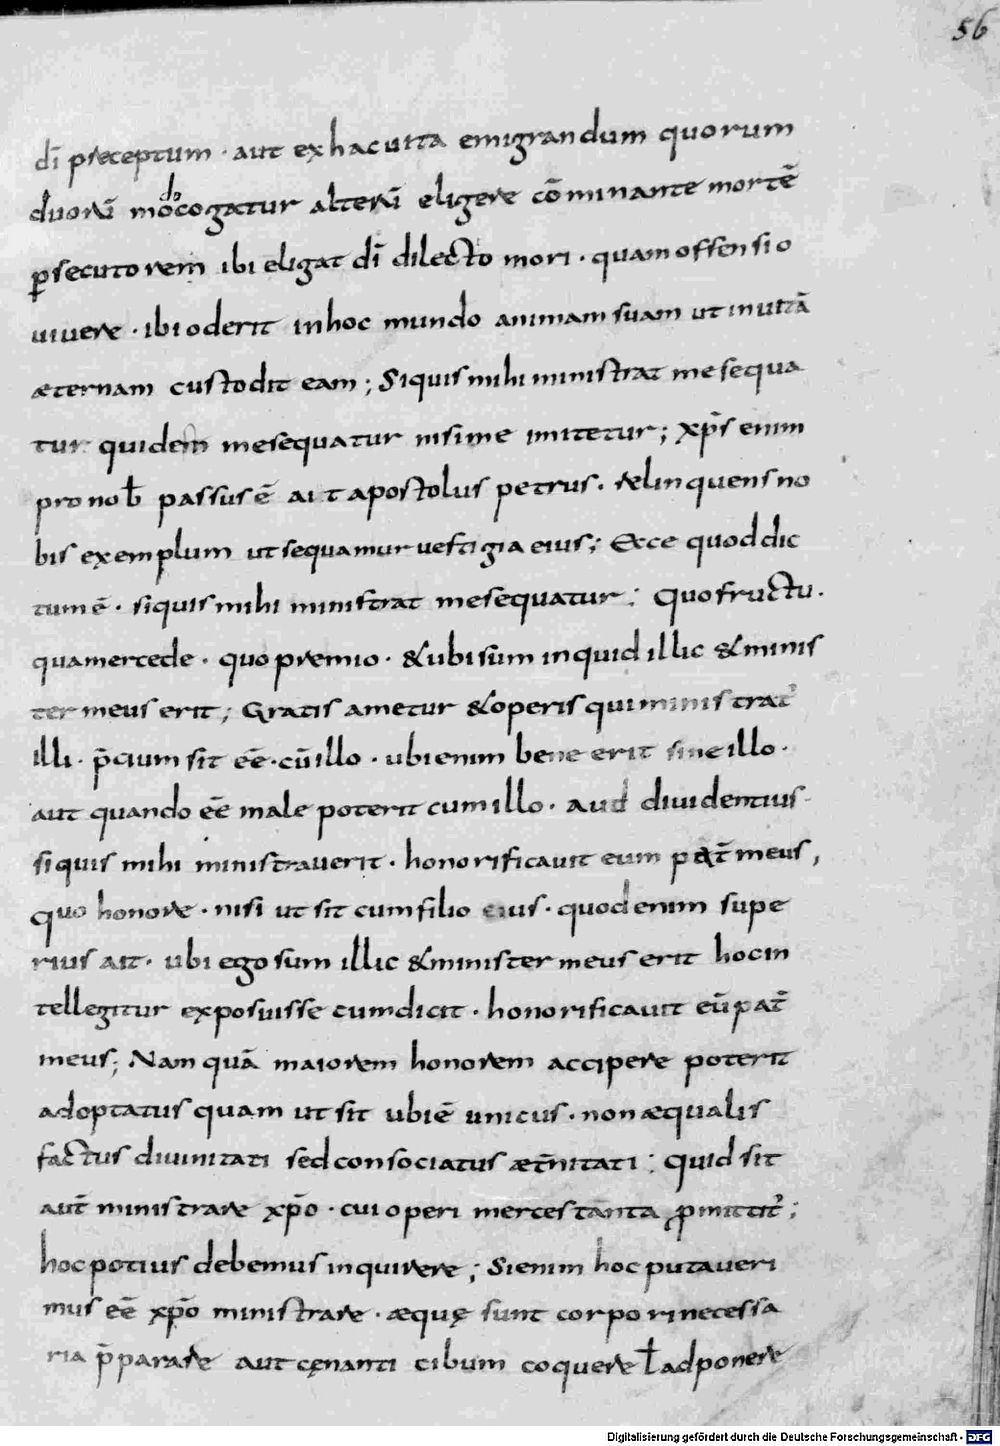 56
dī preceptum · aut exhacuita emigrandum quorum
duorū modocogatur alterū eligere cōminante mortē
p̱secutorem ibi eligat dī dilecto mori · quamoffensio
uiuere · ibioderit inhoc mundo animam suam utinuitā
æternam custodit eam ; Siquis mihi ministrat mesequa
tur quidem mesequatur nisi me imitetur ; xp̄s enim
pro nob̄ passus ē ait apostolus petrus · relinquens no
bis exemplum utsequamur uestigia eius ; Ecce quod dic
tum ē · siquis mihi ministrat mesequatur : Quo fructu ·
qua mercede · quo premio · &ubi sum inquid illic &minis
ter meus erit ; Gratis ametur &operis qui ministrat'
illi · p̄cium sit eē · cū illo · ubi enim bene erit sine illo ·
aut quando eē male poterit cum illo · aud diuidentius ·
siquis mihi ministrauerit · honorificauit eum pat̄ meus ,
quo honore · nisi ut sit cum filio eius · quod enim supe
rius ait · ubi ego sum illic &minister meus erit hoc in
tellegitur exposuisse cum dicit · honorificauit eū pat̄
meus ; Nam quā maiorem honorem accipere poterit
adoptatus quam ut sit ubi ē unicus · non æqualis
factus diuinitati sed consociatus æt̄nitati : quid sit
aut̄ ministrare xp̄o · cui operi merces tānta ꝓmittit' ;
hoc potius debemus inquirere ; Si enim hoc putaueri
mus eē xp̄o ministrare · æquę sunt corpori necessa
ria p̄parare aut cęnanti cibum coquere ł adponere
Digitalisierung gefördert durch die Deutsche Forschungsgemeinschaft · DFG